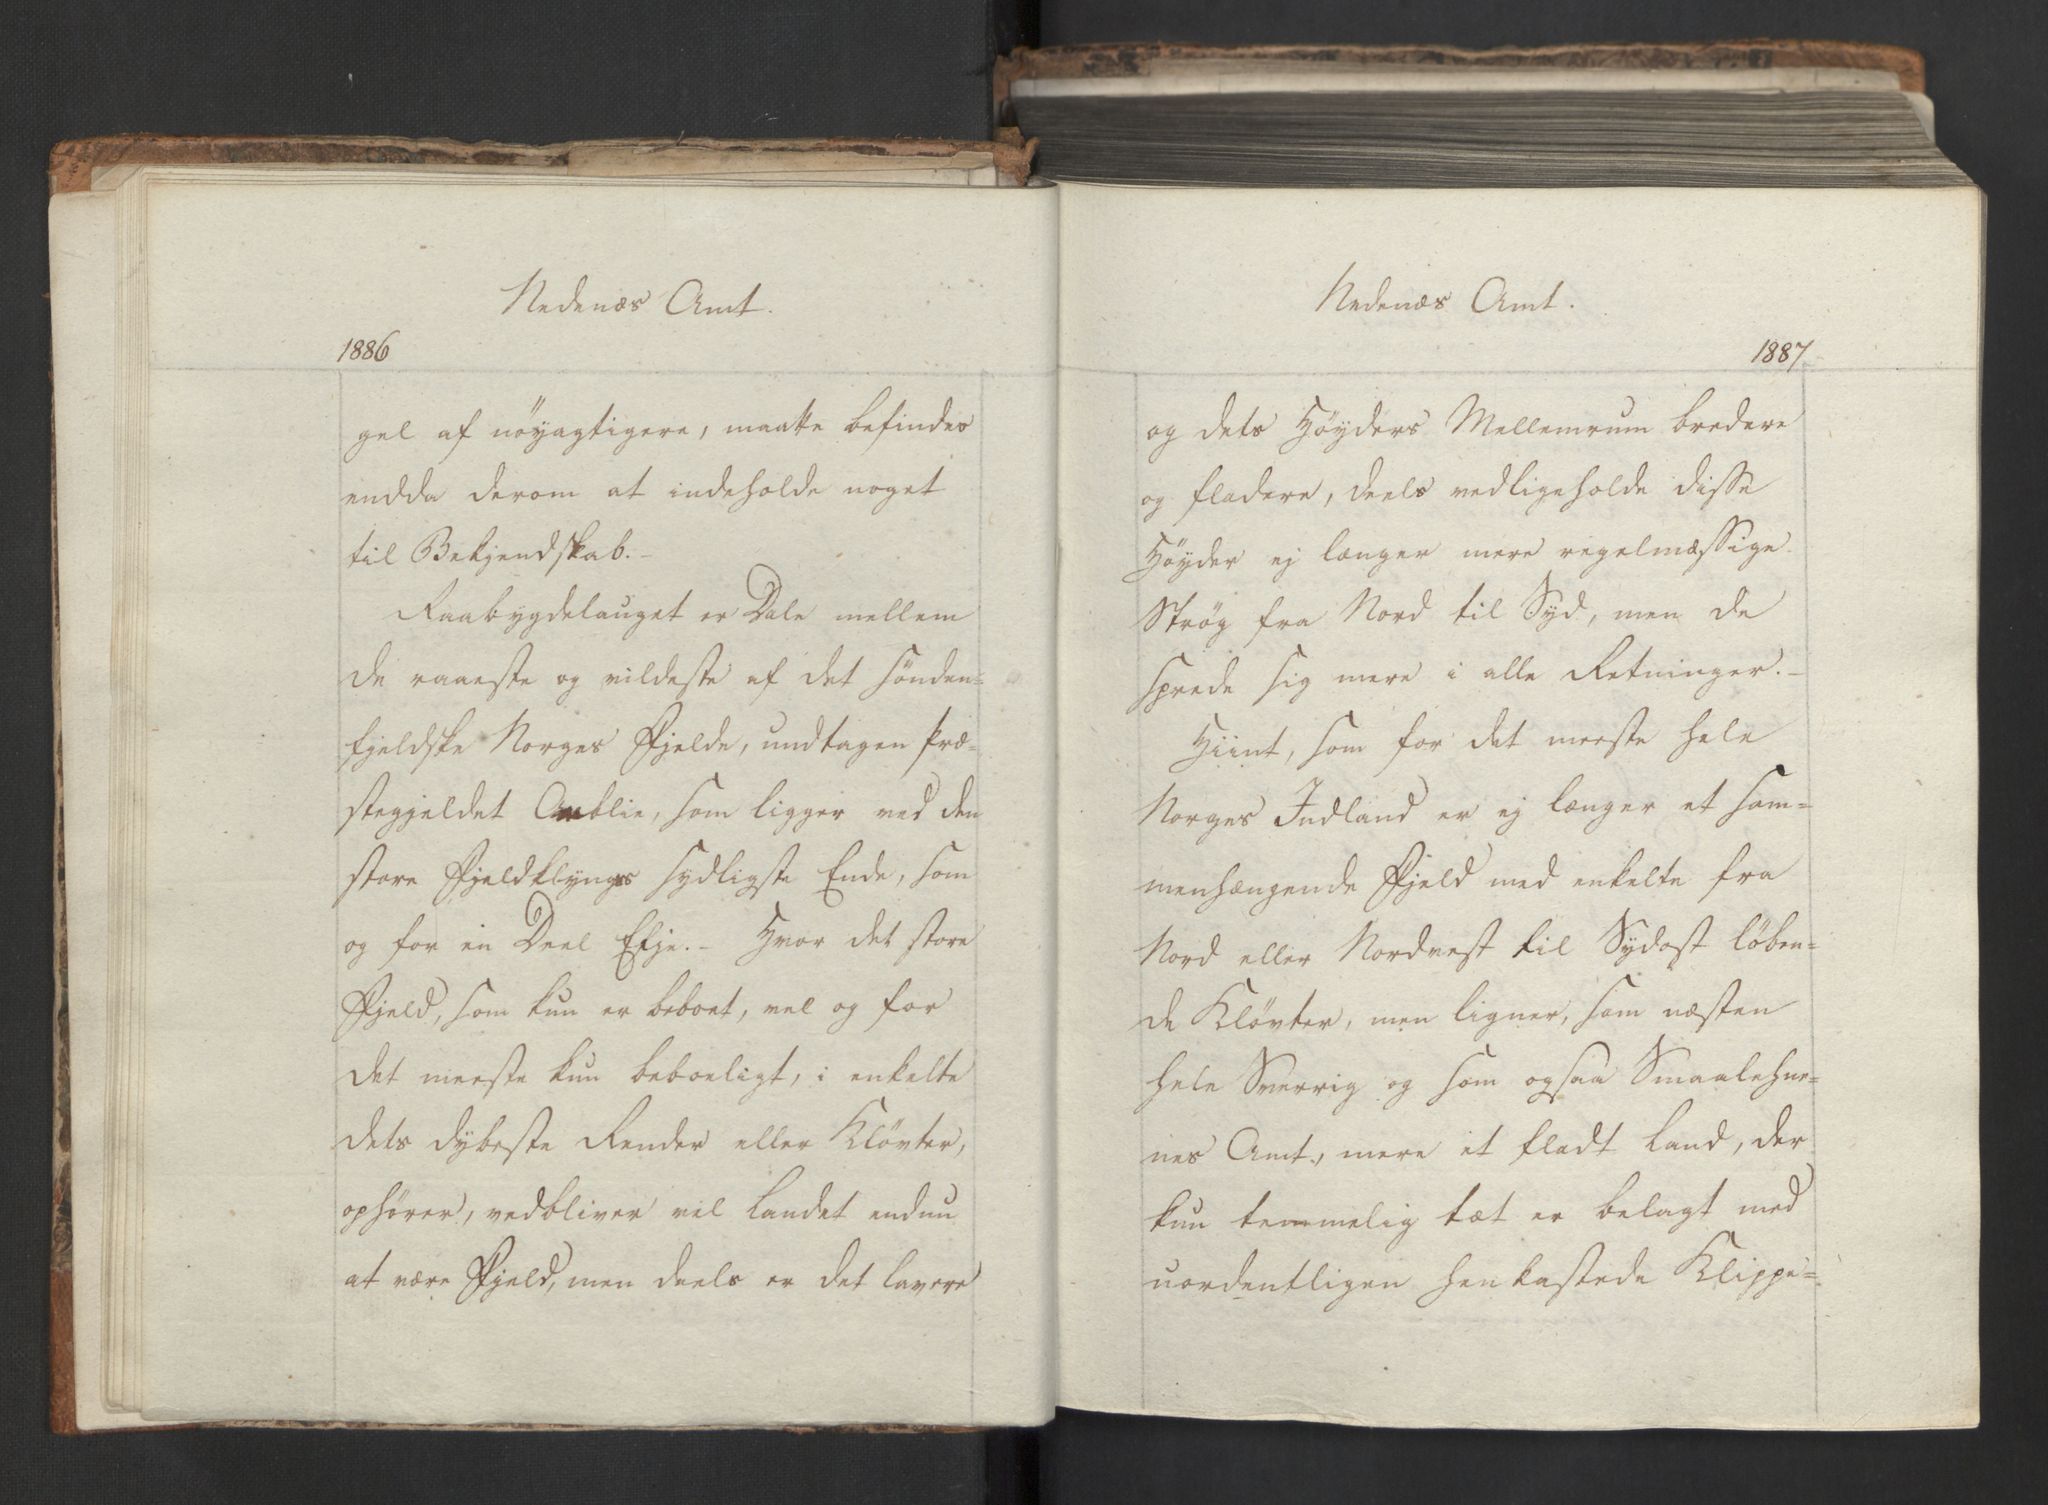 Nedenæs Amt.
1886
gel af nöyagtigere, maatte befindes
endda derom at indeholde noget
til Bekjendskab. –
Raabygdelauget er Dale mellem
de raaeste og vildeste af det sönden-
fjeldske Norges Fjelde, undtagen Præ-
stegjeldet Omblie, som ligger ved den
store Fjeldklynges sydligste Ende, som
og for en Deel Efje. – Hvor det store
Fjeld, som kun er beboet, vel og for
det meeste kun beboeligt, i enkelte
dets dybeste Render eller Klövter,
ophörer, vedbliver vel Landet endnu
at være Fjeld, men deels er det lavere
Nedenæs Amt.
1887
og dets Höyders Mellemrum bredere
og fladere, deels vedligeholde disse
Höyder ej længer mere regelmæssige
Strög fra Nord til Syd, men de
sprede sig mere i alle Retninger. –
Hiint, som for det meeste hele
Norges Indland er ej længer et sam-
menhængende Fjeld med enkelte fra
Nord eller Nordvest til Sydost löben-
de Klövter, men ligner, som næsten
hele Sverrig og som ogsaa Smaalehne-
nes Amt, mere et fladt Land, der
kun temmelig tæt er belagt med
uordentligen henkastede Klippe-